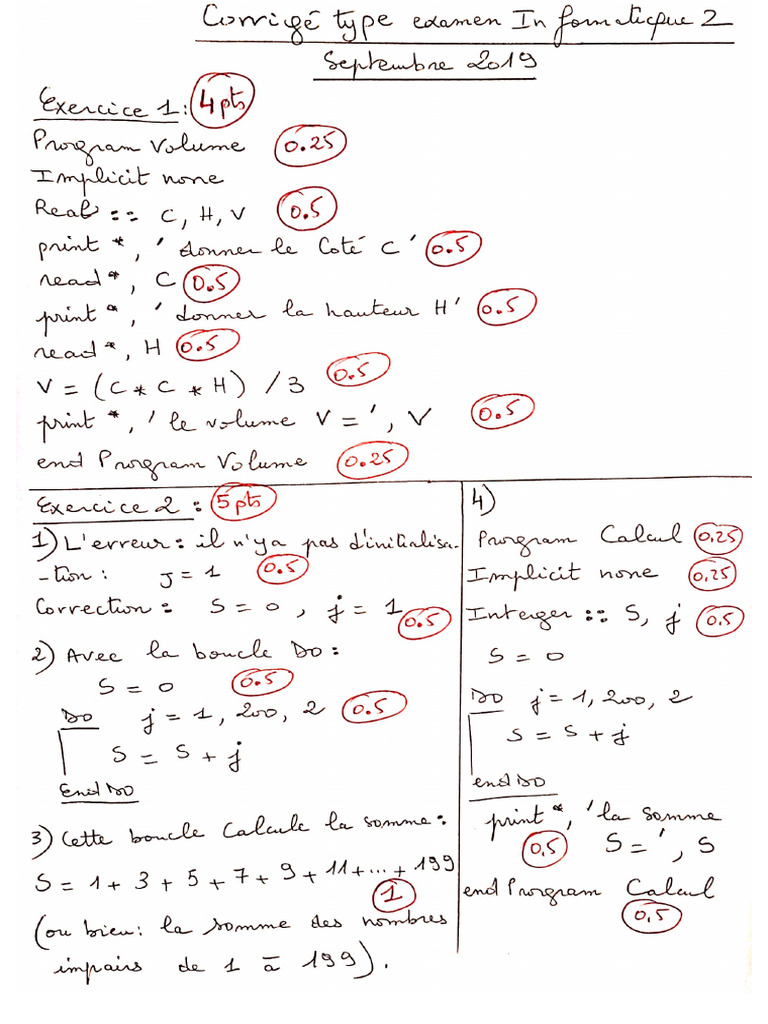 Corrigé type examen Informatique 2
Septembre 2019
Exercice 1 : 4pts
Program Volume 0.25
Implicit none
Real :: C, H, V 0.5
print *, ' donner le Coté C' 0.5
read*, C 0.5
print *, ' donner la hauteur H' 0.5
read*, H 0.5
V = (C * C * H) /3 0.5
print *, ' le volume V =', V 0.5
end Program Volume 0.25
Exercice 2 : 5pts
1) L'erreur : il n'ya pas d'initialisa-
-tion : J = 1 0.5
Correction : S = 0 , j = 1 0.5
2) Avec la boucle Do :
S = 0 0.5
Do j = 1, 200, 2 0.5
S = S + j
End Do
3) Cette boucle Calcule la somme :
S = 1 + 3 + 5 + 7 + 9 + 11 + ... + 199
1
(ou bien : la somme des nombres
impairs de 1 à 199).
4)
Program Calcul 0.25
Implicit none 0.25
Interger :: S, j 0.5
S = 0
Do j = 1, 200, 2
S = S + j
end Do
print *, ' la somme
0,5 S = ', S
end Program Calcul
0.5